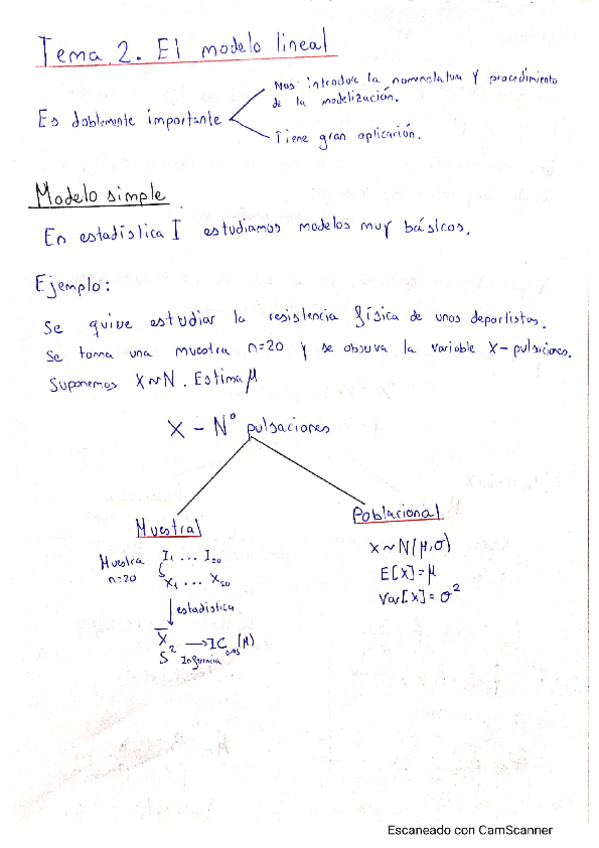 Tema 2. El modelo lineal
Es doblemente importante
Nos introduce la nomenclatura y procedimiento
de la modelización.
Tiene gran aplicación.
Modelo simple
En estadística I estudiamos modelos muy básicos.
Ejemplo:
Se quiere estudiar la resistencia física de unos deportistas.
Se toma una muestra n=20 y se observa la variable X-pulsaciones.
Suponemos X~N. Estima μ
X - Nº pulsaciones
Muestral
Muestra I₁ ... I₂₀
n=20 X₁ ... X₂₀
estadística
X̄
S² → IC (μ)
Inferencia
Poblacional
X~N(μ,σ)
E[X]=μ
Var[X]=σ²
Escaneado con CamScanner